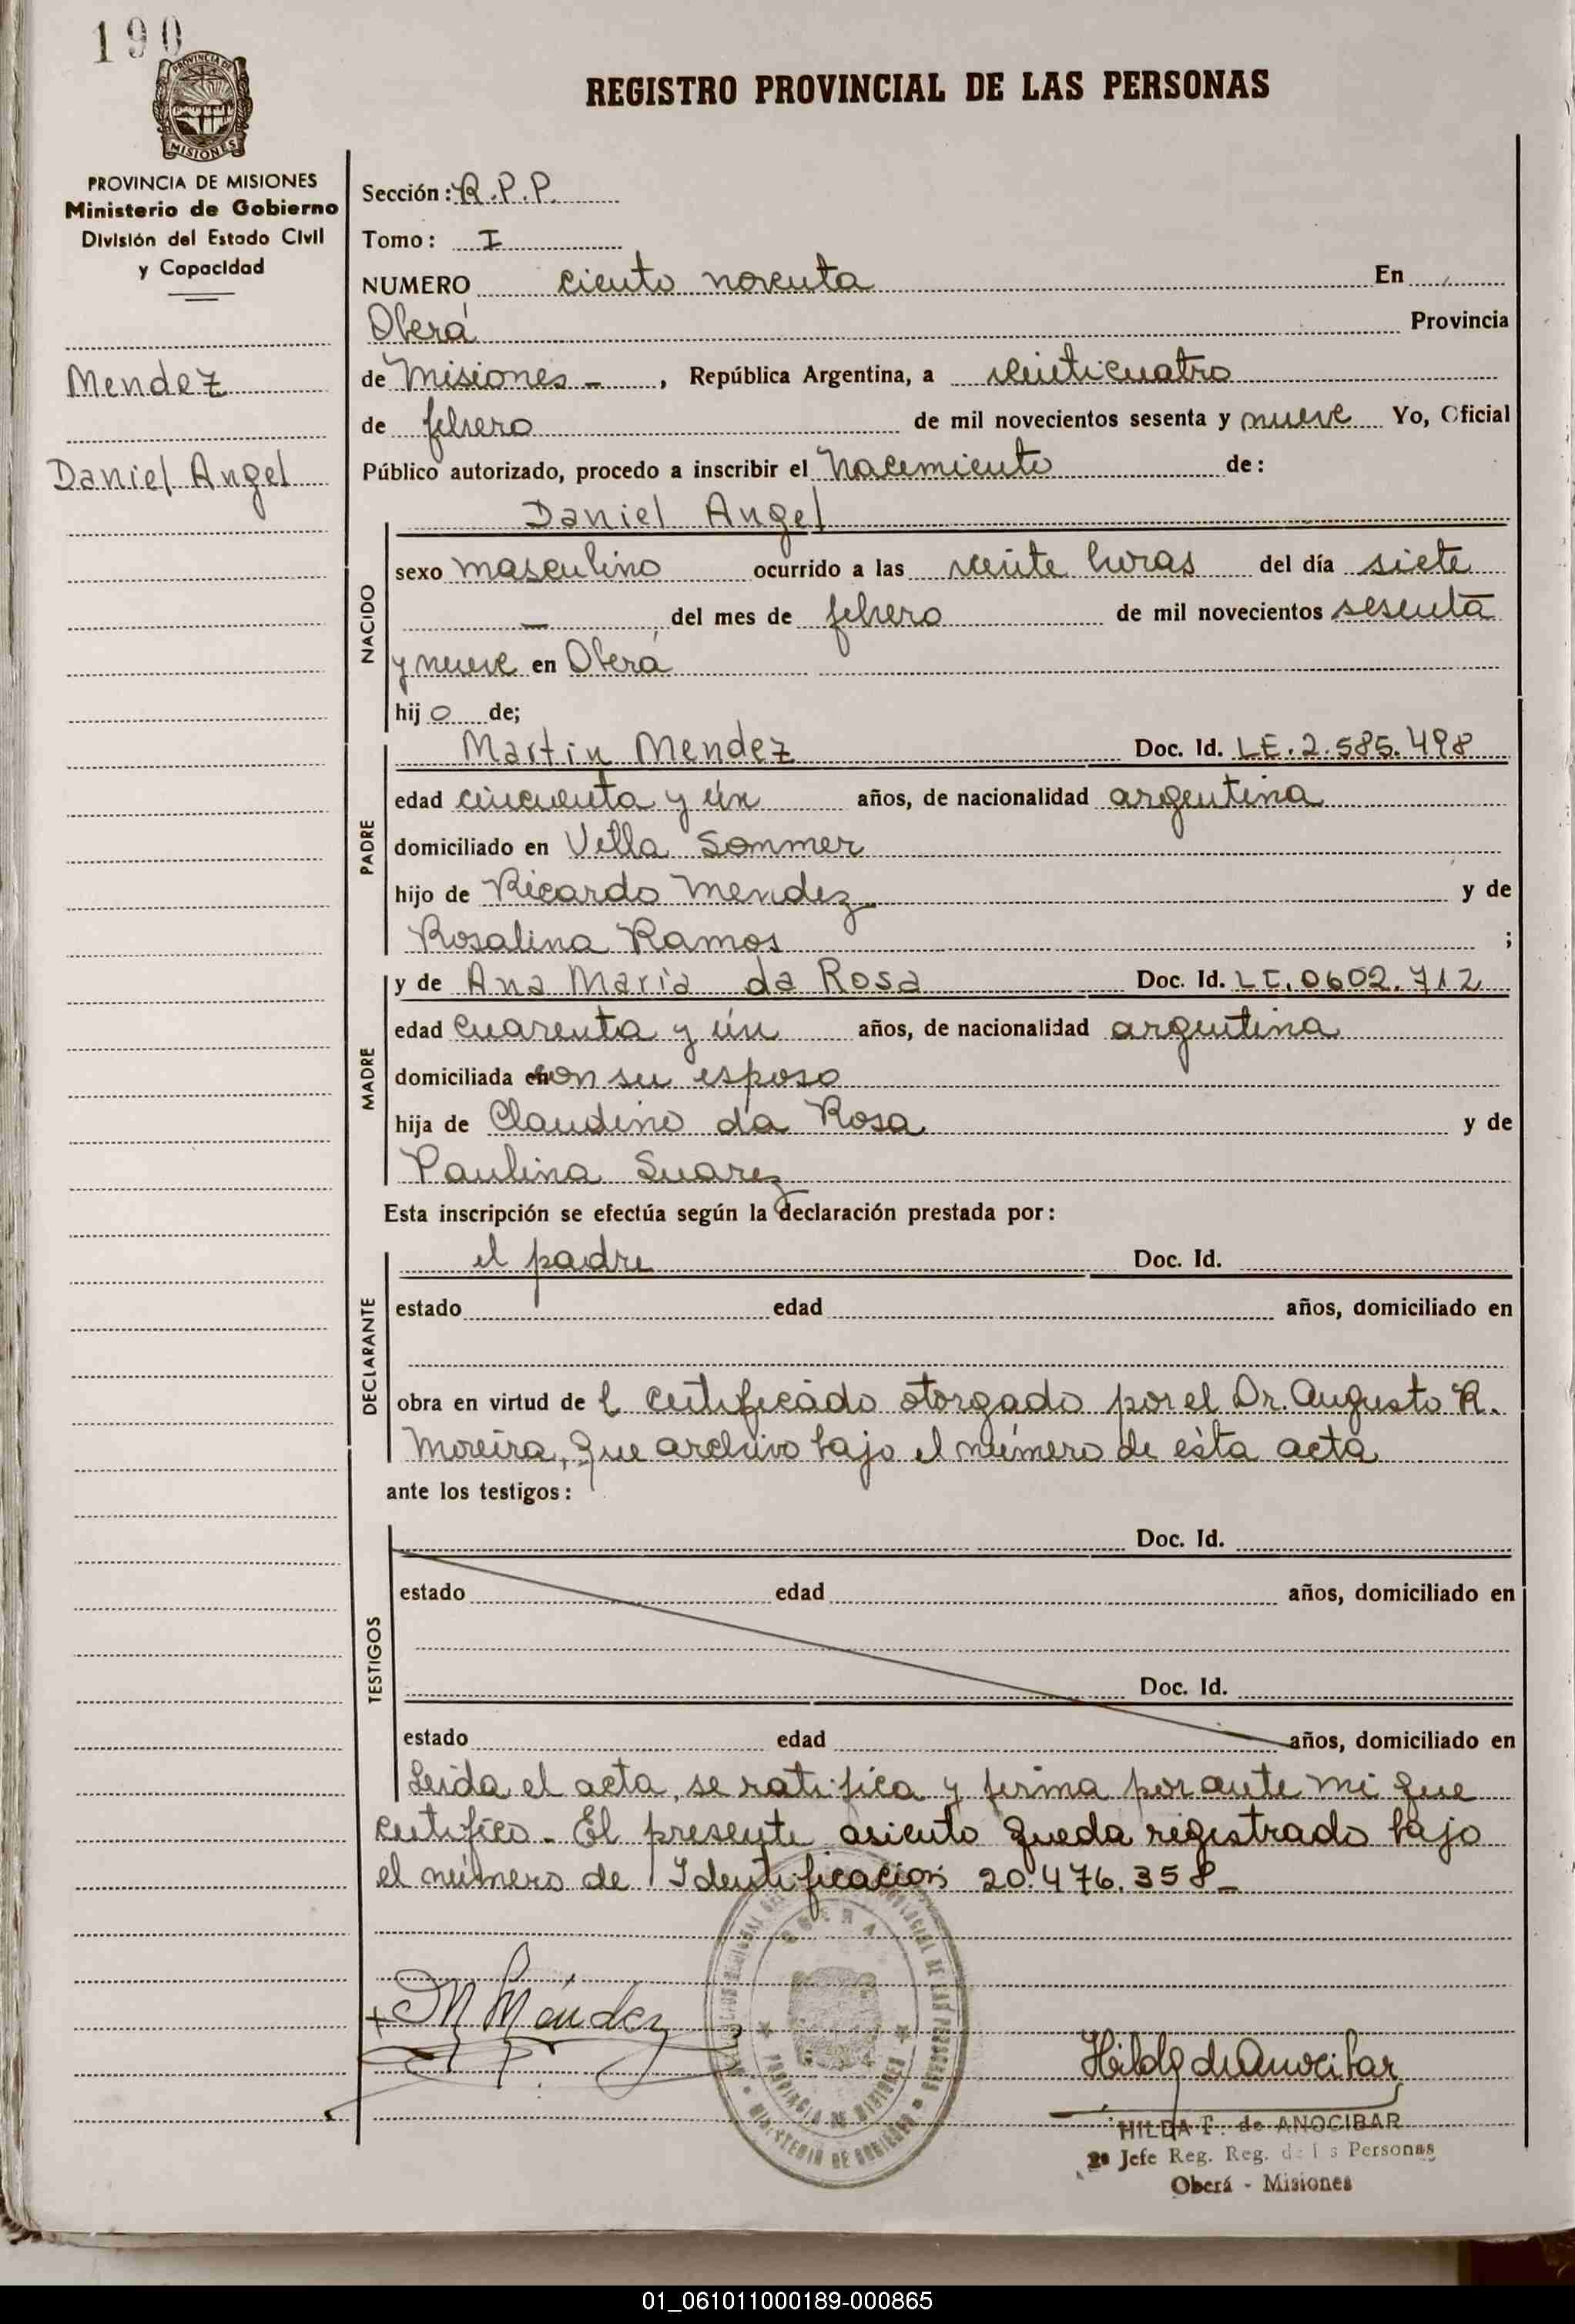 190
PROVINCIA DE
MISIONES
REGISTRO PROVINCIAL DE LAS PERSONAS
PROVINCIA DE MISIONES
Ministerio de Gobierno
División del Estado Civil
y Capacidad
Mendez
Daniel Angel
Sección: R.P.P.
Tomo: I
NUMERO ciento noventa En
Oberá Provincia
de Misiones - , República Argentina, a veinticuatro
de febrero de mil novecientos sesenta y nueve Yo, Oficial
Público autorizado, procedo a inscribir el nacimiento de:
Daniel Angel
NACIDO
sexo masculino ocurrido a las veinte horas del día siete
- del mes de febrero de mil novecientos sesenta
y nueve en Oberá
hijo de;
PADRE
Martin Mendez Doc. Id. LE.2.585.498
edad cincuenta y ún años, de nacionalidad argentina
domiciliado en Villa Sommer
hijo de Ricardo Mendez y de
Rosalina Ramos ;
MADRE
y de Ana Maria da Rosa Doc. Id. LC.0602.712
edad cuarenta y ún años, de nacionalidad argentina
domiciliada con su esposo
hija de Claudino da Rosa y de
Paulina Suarez
Esta inscripción se efectúa según la declaración prestada por:
DECLARANTE
el padre Doc. Id.
estado edad años, domiciliado en
obra en virtud de l certificado otorgado por el Dr. Augusto R.
Moreira, que archivo bajo el número de ésta acta
ante los testigos:
TESTIGOS
Doc. Id.
estado edad años, domiciliado en
Doc. Id.
estado edad años, domiciliado en
Leida el acta, se ratifica y firma por ante mi que
certifico. El presente asiento queda registrado bajo
el número de Identificación 20.476.358-
OBERA
PROVINCIA DE MISIONES
MINISTERIO DE GOBIERNO
M Méndez
Hilda de Anocibar
HILDA T. de ANOCIBAR
2º Jefe Reg. Reg. de l s Personas
Oberá - Misiones
01_061011000189-000865